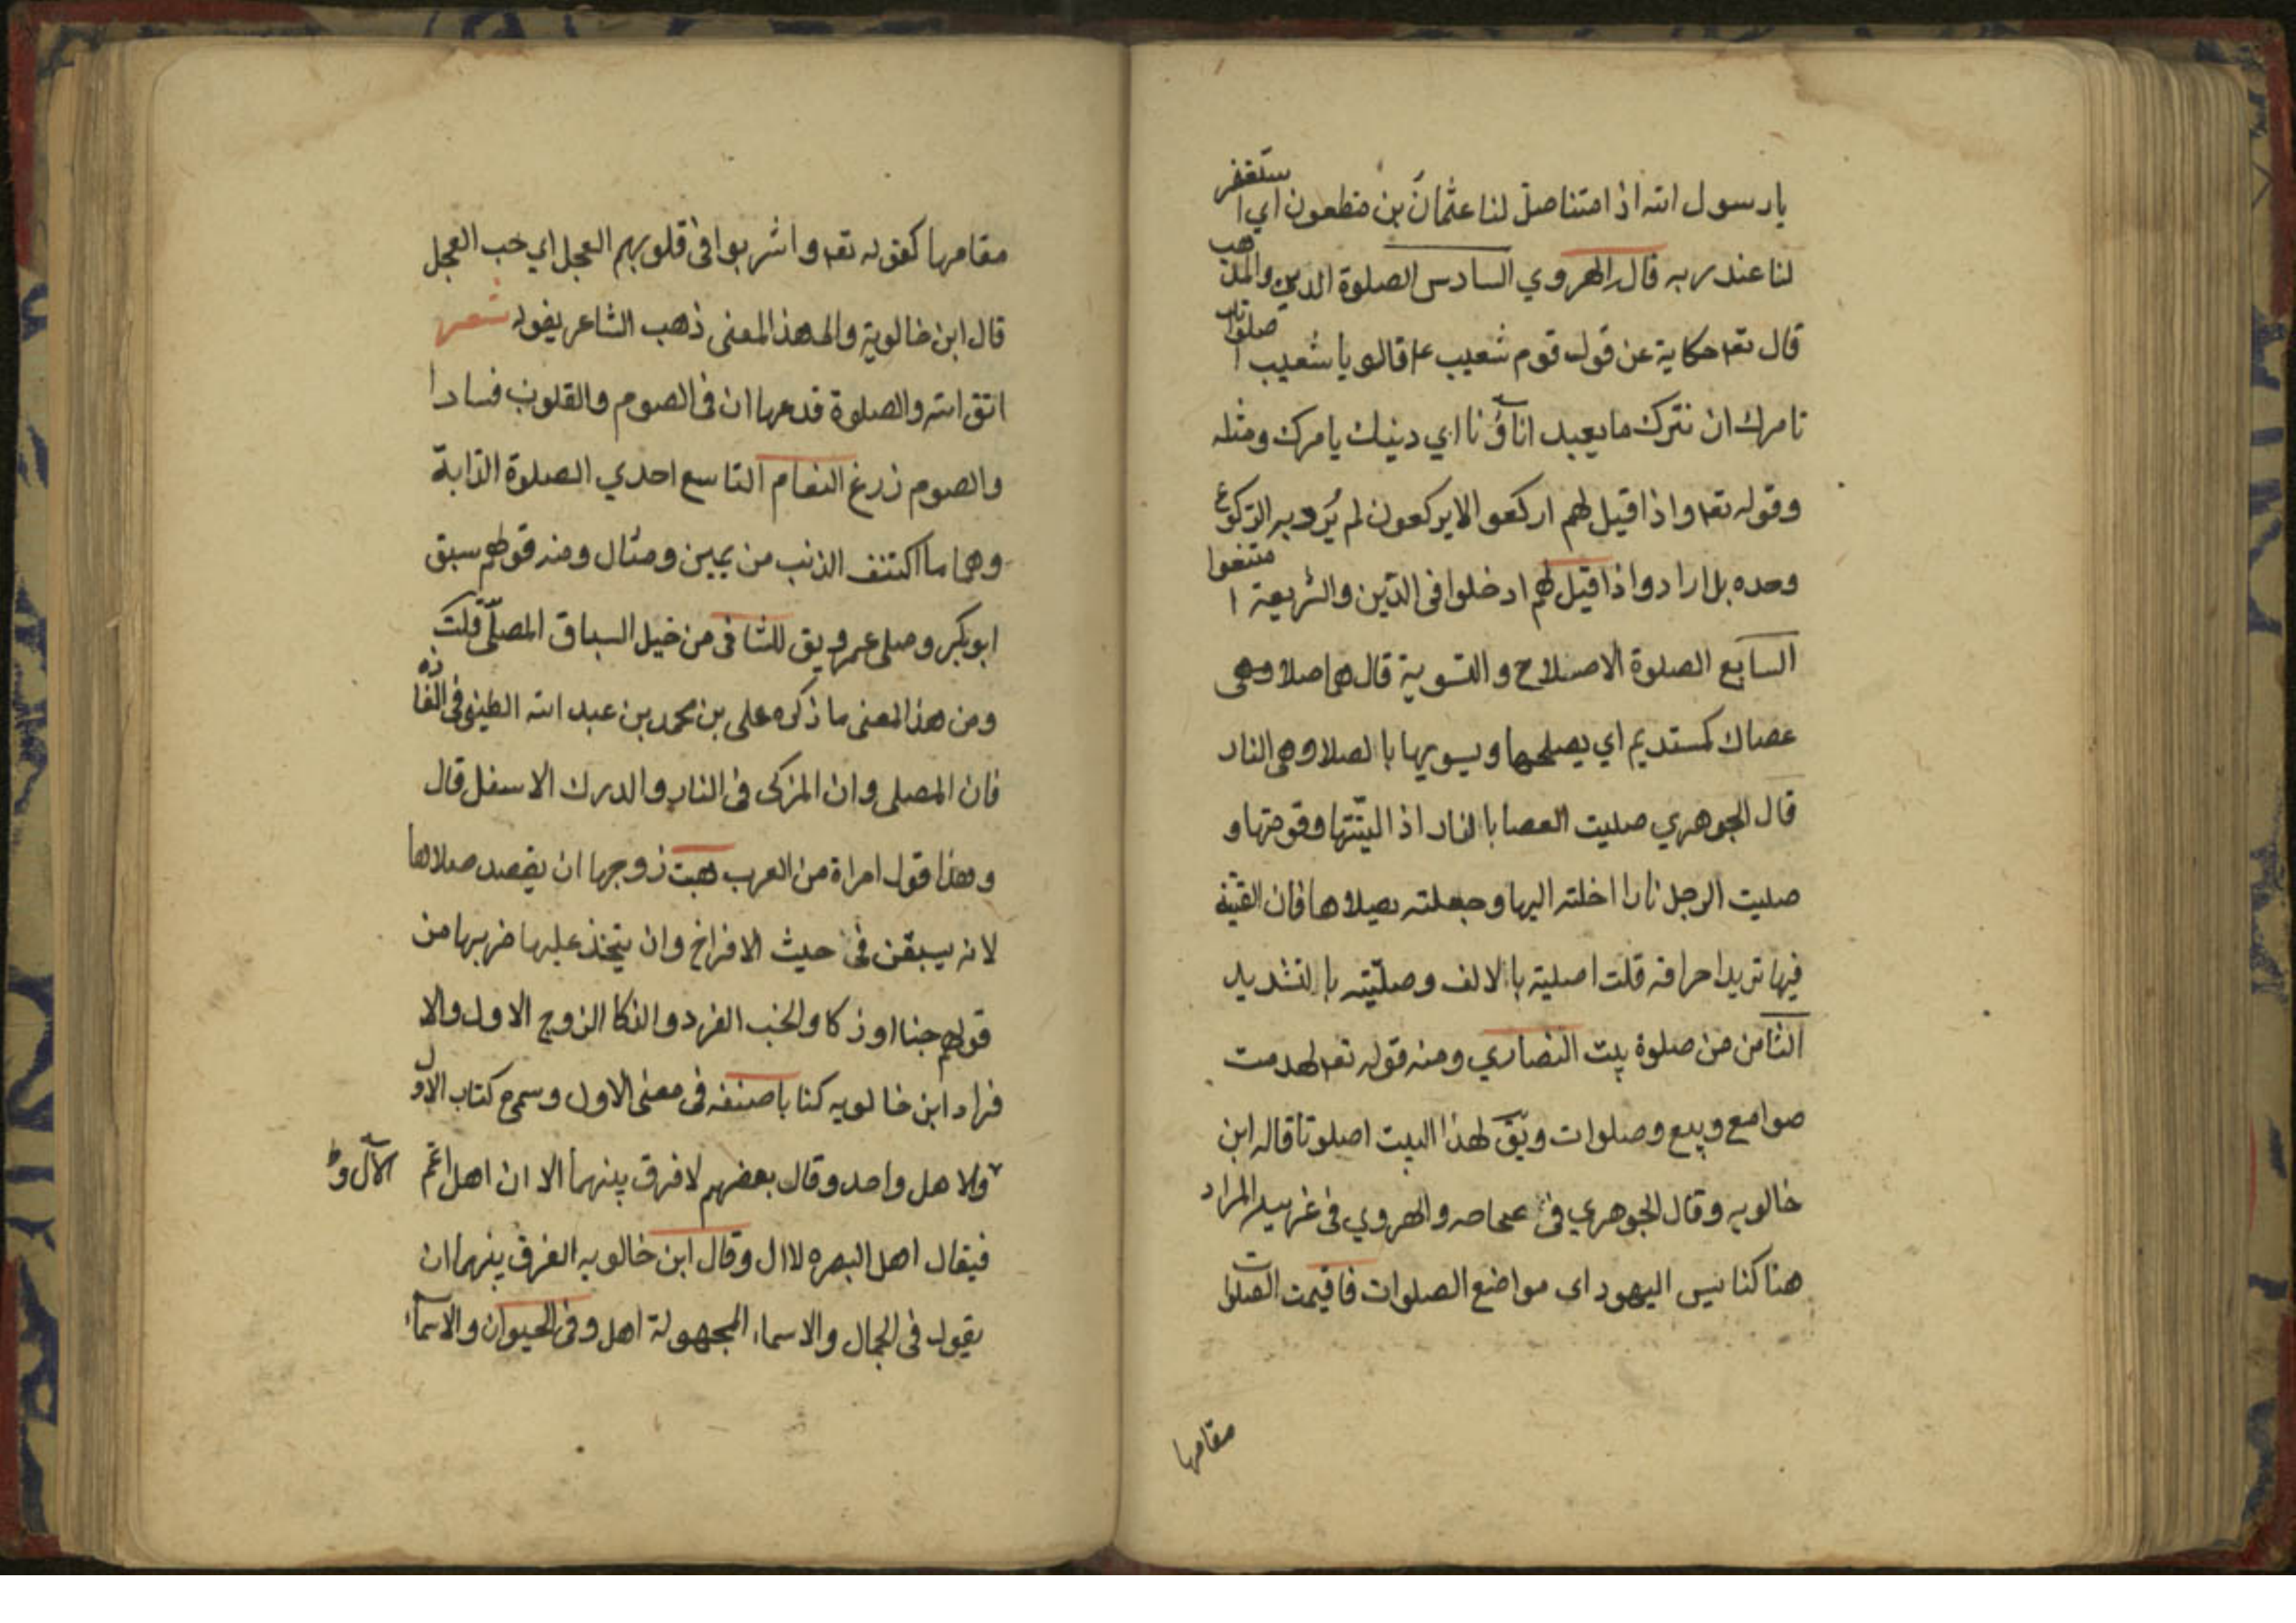 يا رسول الله اذا متنا صلى لنا عثمان بن مظعون اي استغفر
لنا عند ربه قال الهروي السادس الصلوة الدين والمذهب
قال تعه حكاية عن قول قوم شعيب عم قالو يا شعيب اصلواتك
تامرك ان نترك ما يعبد اباؤنا اي دينك يامرك ومثله
وقوله تعه واذا قيل لهم اركعوا لا يركعون لم يرد به الركوع
وحده بل اراد واذا قيل لهم ادخلوا فى الدين والشريعة امتنعوا
السابع الصلوة الاصلاح والتسوية قال هما صلا وهى
عصاك كمستديم اي يصلحها ويسويها بالصلا وهى النار
قال الجوهري صليت العصا بالنار اذ الينتها وقومتها و
صليت الرجل نارا ادخلته اليها وجعلته يصلاها فان القيته
فيها تريد احراقه قلت اصليته بالالف وصليته بالتشديد
الثامن من صلوة بيت النصاري ومنه قوله تعه لهدمت
صوامع وبيع وصلوات ويق لهذا البيت اصلوتا قاله ابن
خالويه وقال الجوهري فى صحاحه والهروي فى غريبيه المراد
هنا كنايس اليهود اى مواضع الصلوات فاقيمت الصلوات
مقامها
مقامها كقوله تعه واشربوا فى قلوبهم العجل اي حب العجل
قال ابن خالوية والى هذا المعنى ذهب الشاعر بقوله شعر
اتق الله والصلوة فدعها ان فى الصوم والقلوب فسادا
والصوم زرغ النعام التاسع احدي الصلوة الذابة
وهما ما اكتنف الذنب من يمين وشمال ومنه قولهم سبق
ابو بكر وصلى عمر ويق للثانى من خيل السباق المصلى قلت
ومن هذا المعنى ما ذكره على بن محمد بن عبد الله فى
فان المصلى وان المزكى فى النار والدرك الاسفل قال
وهذا قول امراة من العرب هجت زوجها ان يقصد صلاها
لانه يسبقن فى حيث الافراخ وان يتخذ عليها ضربها من
قولهم جنا او زكا والخنب الفرد والزكا الزوج الاول والا
فراد ابن خالويه كتابا صنفه فى معنى الاول وسمى كتاب الاول
ولا هل واحد وقال بعضهم لا فرق بينهما الا ان اهل اعم الآل و
فيقال اهل البصره لا ال وقال ابن خالويه الفرق بينهما ان
يقول فى الجمال والاسماء المجهولة اهل وفى الحيوان والاسماء